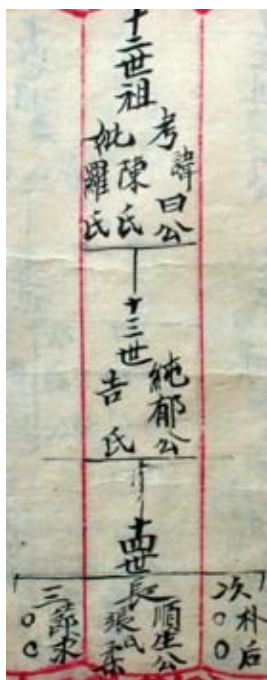 十二世祖
考諱曰公
妣陳氏
羅氏
十三世
純郁公
吉氏
十四世
次朴后
長順生公
張氏柔
三節求